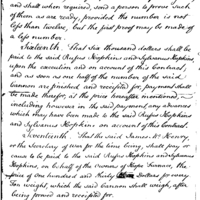 and shall when required, send a person to prove such
of them as are ready, provided the number is not
less than twelve, but the first proof may be made of
a less number.
Sixteenth. That six thousand dollars shall be
paid to the said Rufus Hopkins and Sylvanus Hopkins
upon the execution and on account of this contract,
and as soon as one half of the number of the said
Cannon are finished and receipted for, payment shall
be made thereof at the price herein mentioned
including however in the said payment any advances
which may have been made to the said Rufus Hopkins and
Sylvanus Hopkins on account of this Contract.
Seventeenth. That the said James McHenry,
as Secretary of war for the time being, shall pay or
cause to be paid to the said Rufus Hopkins and Sylvanus
Hopkins, in behalf of the Owners of Hope Furnace, the
price of one hundred and thirty Dollars for every
Ton weight, which the said Cannon shall weigh, after
being proved and receipted for.